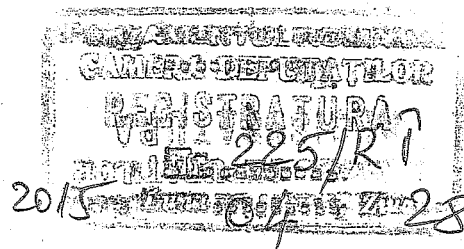 PARLAMENTUL ROMÂNIEI
CAMERA DEPUTAȚILOR
REGISTRATURA
Nr. 225/RÎ
2015 04 Ziua 28